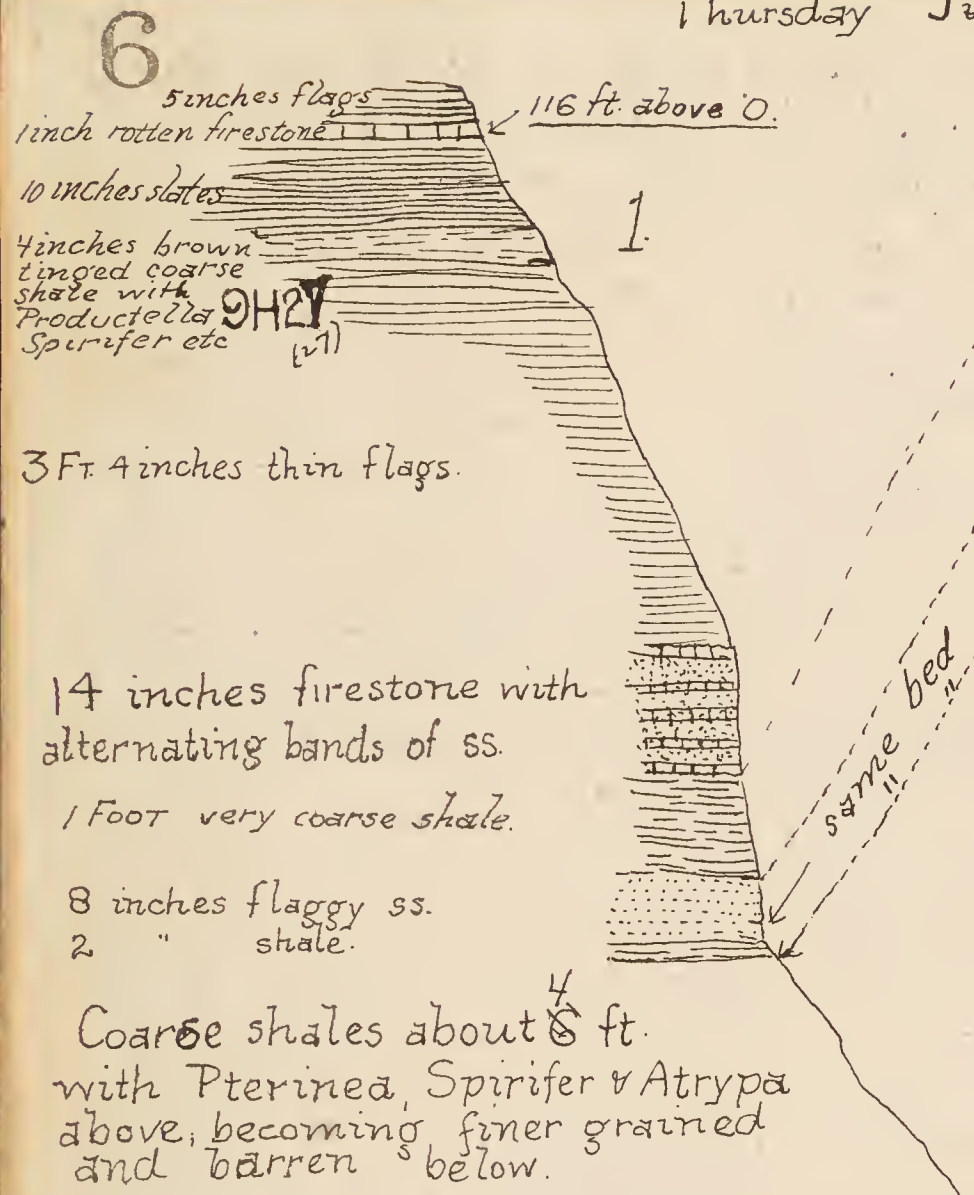 6
Thursday
5 inches flags
1 inch rotten firestone
116 ft. above O.
10 inches slates
1.
4 inches brown
tinged coarse
shale with
Productella 9H27
Spirifer etc (27)
3 FT. 4 inches thin flags.
14 inches firestone with
alternating bands of ss.
1 FOOT very coarse shale.
same bed
" "
8 inches flaggy ss.
2 " shale.
4
Coarse shales about 6 ft.
with Pterinea, Spirifer & Atrypa
above, becoming finer grained
and barren below.